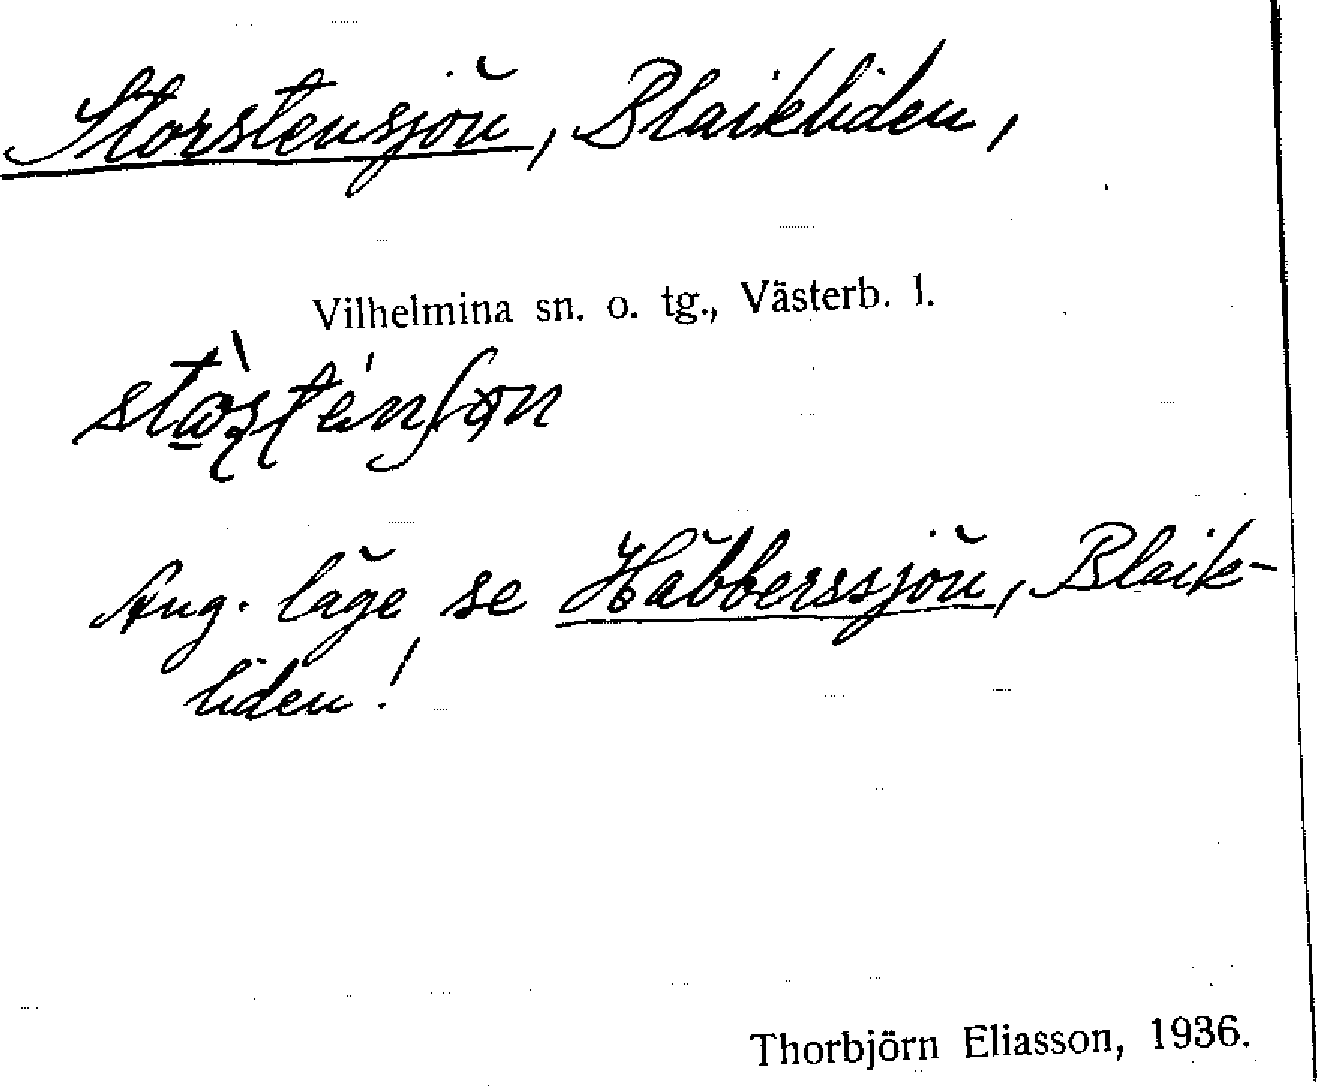 Storstensjön, Blaikliden,
Vilhelmina sn. o. tg., Västerb. l.
Ang. läge se Häbberssjön, Blaik-
liden!
Thorbjörn Eliasson, 1936.